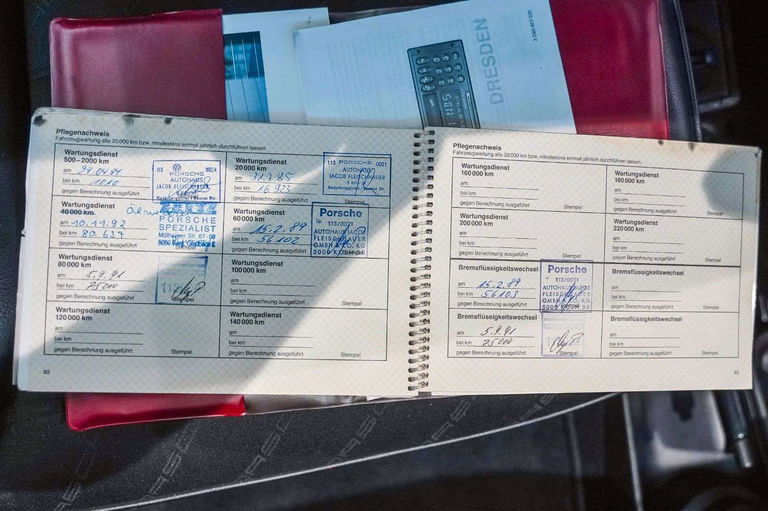 DRESDEN
Pflegenachweis
Fahrzeugwartung alle 20 000 km bzw. mindestens einmal jährlich durchführen lassen.
Wartungsdienst
500–2000 km
am
bei km 1010
gegen Berechnung ausgeführt
PORSCHE
AUTOHAUS
JACOB FLEISCHHAUER
Wartungsdienst
20 000 km
am
bei km 16 923
gegen Berechnung ausgeführt
113 PORSCHE 0021
AUTOHAUS
JACOB FLEISCHHAUER
Stempel
Wartungsdienst
40 000 km
am 10.11.92
bei km 80.637
gegen Berechnung ausgeführt
PORSCHE
SPEZIALIST
Wartungsdienst
60 000 km
am 15.2.89
bei km 56 102
gegen Berechnung ausgeführt
Porsche
113/0021
AUTOHAUS JACOB
FLEISCHHAUER
GMBH & CO. KG
5000 KÖLN 30
Wartungsdienst
80 000 km
am 5.9.91
bei km 75000
gegen Berechnung ausgeführt
Stempel
Wartungsdienst
100 000 km
am
bei km
gegen Berechnung ausgeführt
Stempel
Wartungsdienst
120 000 km
am
bei km
gegen Berechnung ausgeführt
Stempel
Wartungsdienst
140 000 km
am
bei km
gegen Berechnung ausgeführt
Stempel
92
Pflegenachweis
Fahrzeugwartung alle 20 000 km bzw. mindestens einmal jährlich durchführen lassen.
Wartungsdienst
160 000 km
am
bei km
gegen Berechnung ausgeführt
Stempel
Wartungsdienst
180 000 km
am
bei km
gegen Berechnung ausgeführt
Stempel
Wartungsdienst
200 000 km
am
bei km
gegen Berechnung ausgeführt
Stempel
Wartungsdienst
220 000 km
am
bei km
gegen Berechnung ausgeführt
Stempel
Bremsflüssigkeitswechsel
am 15.2.89
bei km 56103
gegen Berechnung ausgeführt
Porsche
113/0021
AUTOHAUS
FLEISCHHAUER
GMBH & CO. KG
5000 KÖLN 30
Bremsflüssigkeitswechsel
am
bei km
gegen Berechnung ausgeführt
Stempel
Bremsflüssigkeitswechsel
am 5.9.91
bei km 75000
gegen Berechnung ausgeführt
Stempel
Bremsflüssigkeitswechsel
am
bei km
gegen Berechnung ausgeführt
Stempel